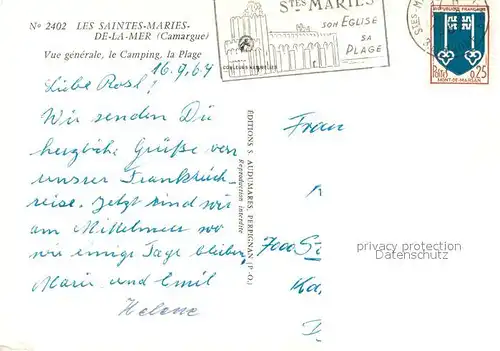 Nº 2402 LES SAINTES-MARIES-
DE-LA-MER (Camargue)
Vue générale, le Camping, la Plage
16.9.64
STES MARIES
SON EGLISE
SA
PLAGE
REPUBLIQUE FRANÇAISE
POSTES 0,25
MONT-DE-MARSAN
Liebe Rosl!
Wir senden Dir
herzliche Grüße von
unsrer Frankreich-
reise. Jetzt sind wir
am Mittelmeer wo
wir einige Tage bleiben.
Marie und Emil
Helene
ÉDITIONS S. AUDUMARES, PERPIGNAN (P.-O.)
Reproduction interdite
Frau
7000 S
Ka
privacy protection
Datenschutz